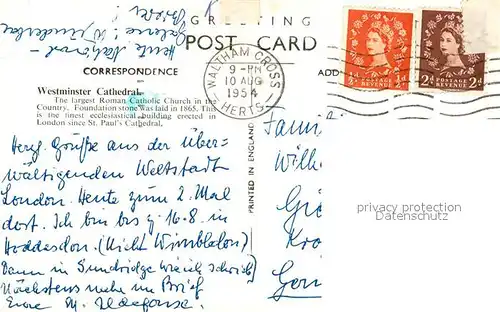 GREETING
POST CARD
Heute National -
CORRESPONDENCE
ADD
WALTHAM CROSS
9 - PM
10 AUG
1954
HERTS
½d POSTAGE REVENUE ½d
2d POSTAGE REVENUE 2d
Westminster Cathedral.
The largest Roman Catholic Church in the
Country. Foundation stone was laid in 1865. This
is the finest ecclesiastical building erected in
London since St. Paul's Cathedral.
PRINTED IN ENGLAND
Herzl. Grüße aus der über-
wältigenden Weltstadt
London. Heute zum 2. Mal
dort. Ich bin bis z. 16.8 in
Hoddesdon. (Nicht Wimbledon)
Dann in Sundridge
Nächstens mehr im Brief
Eure M. Ildefonsa.
privacy protection
Datenschutz